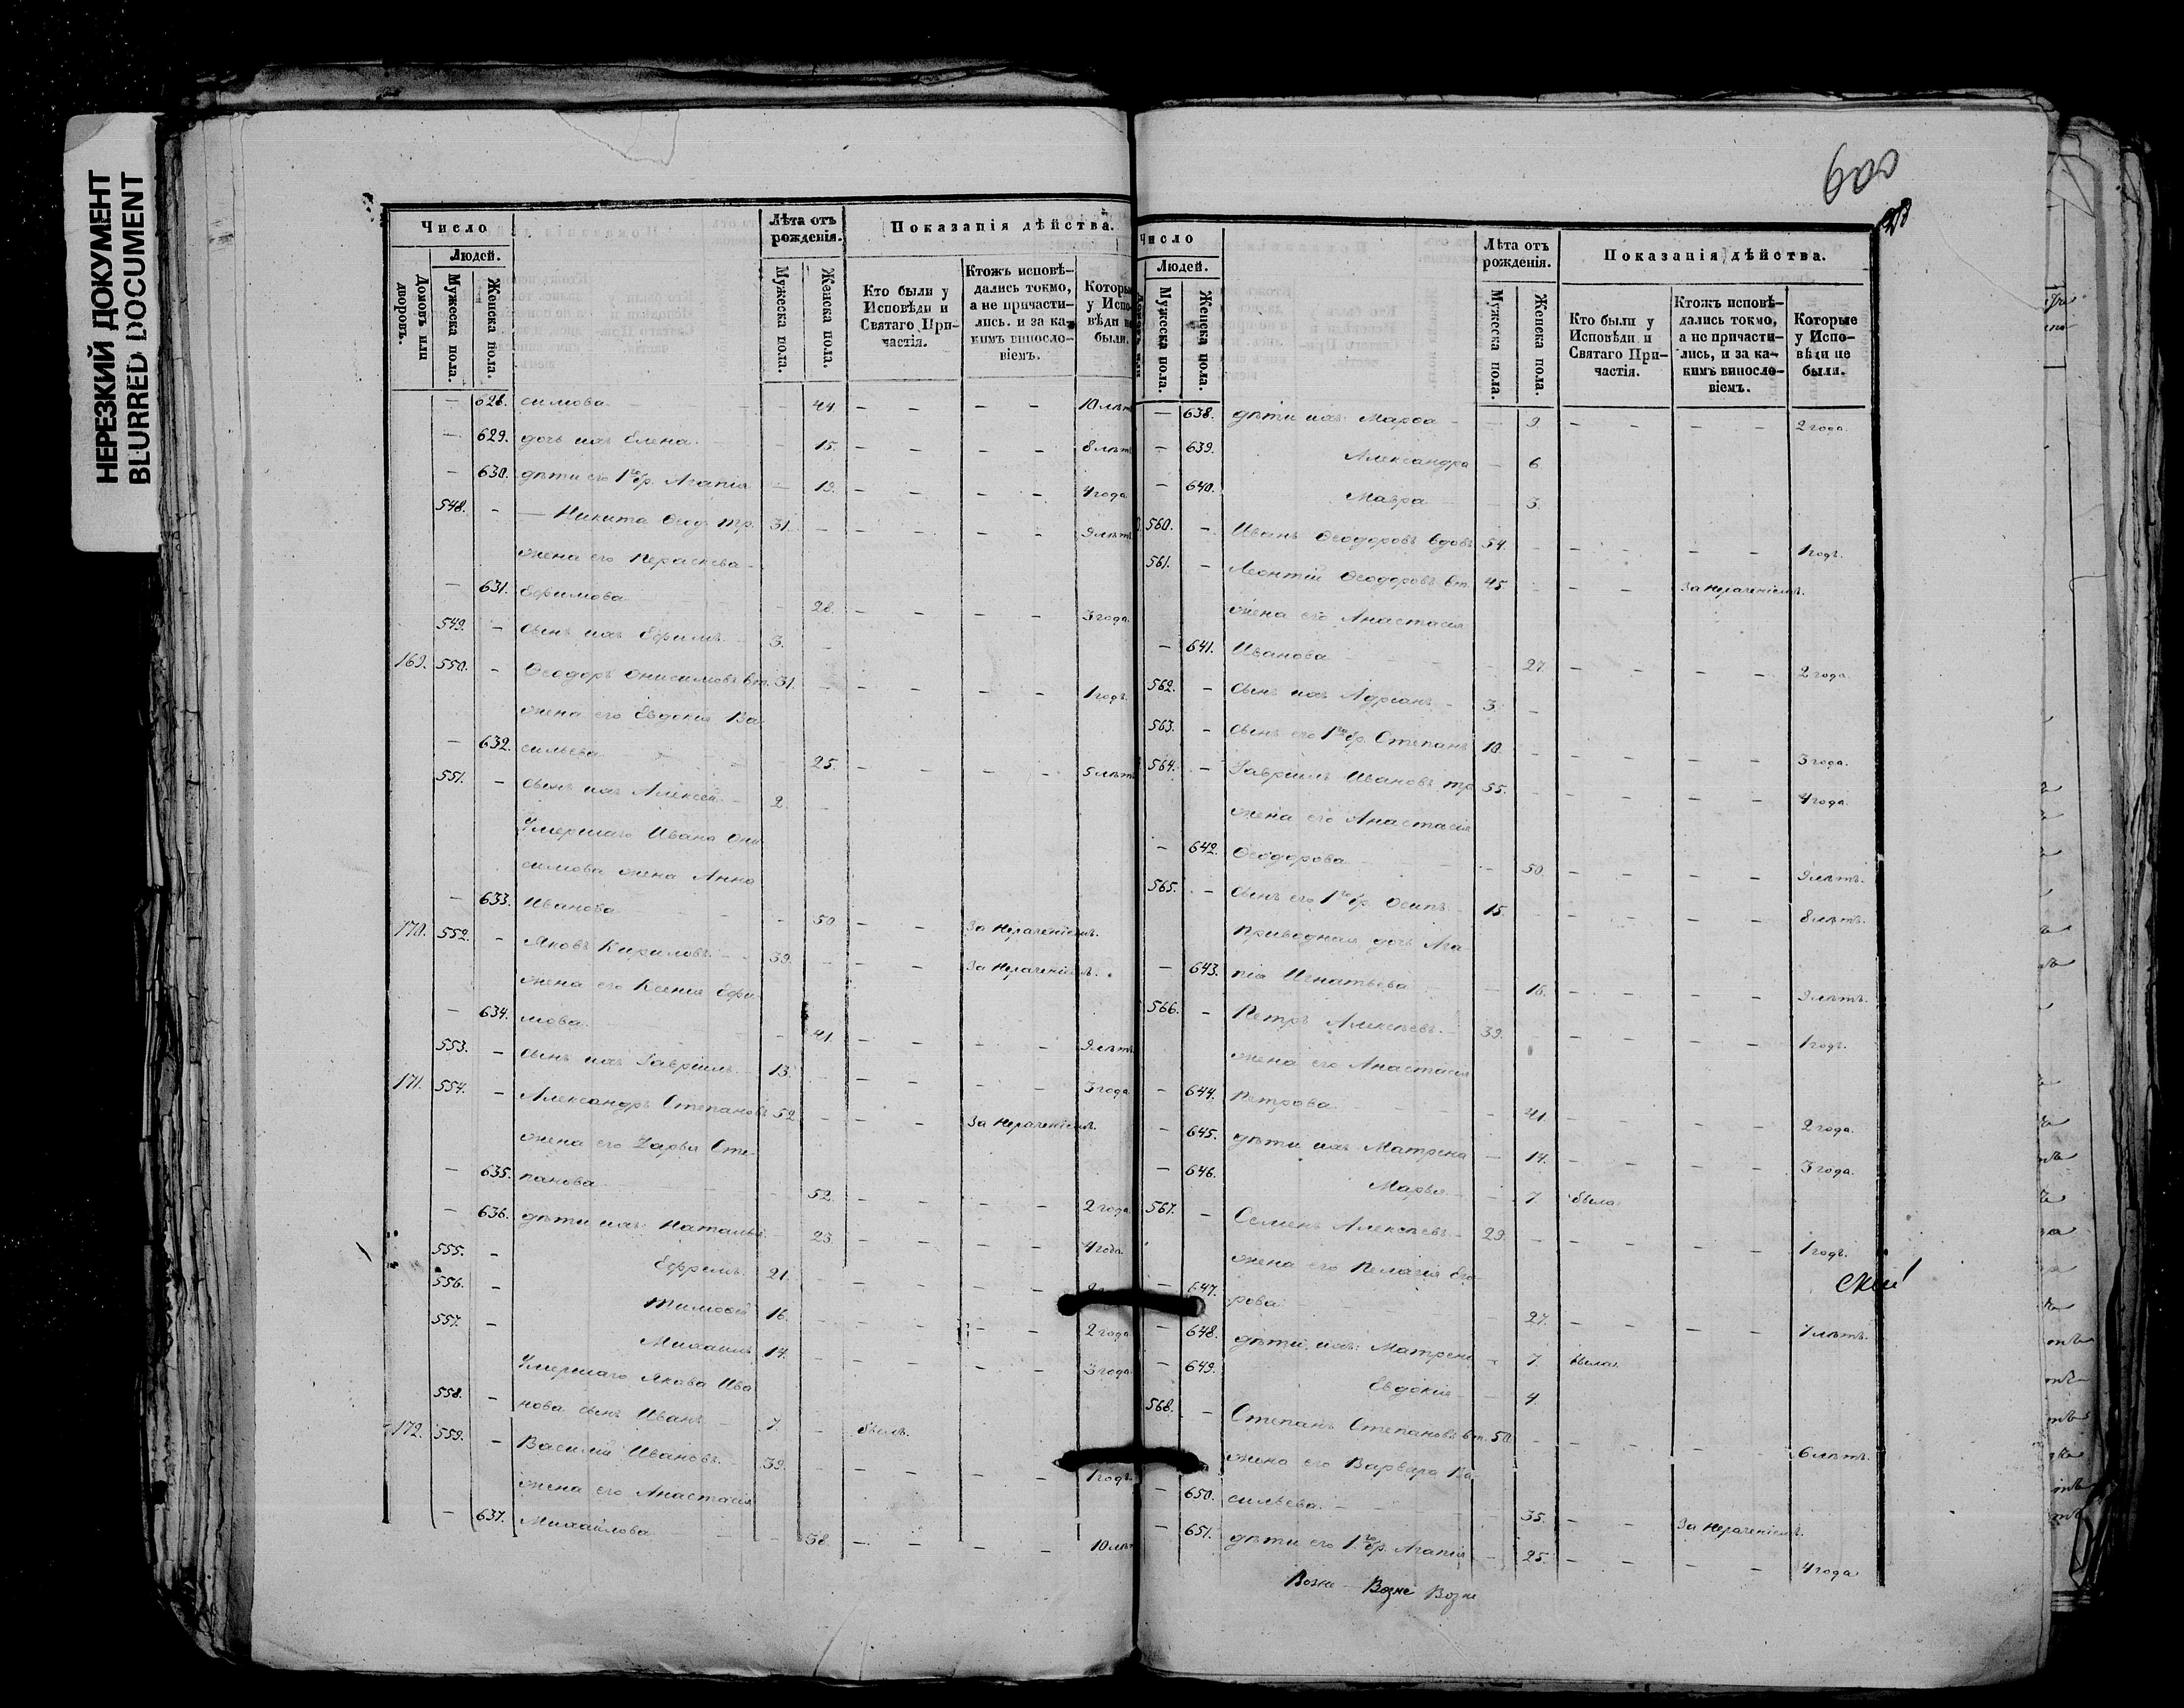 НЕРЕЗКИЙ ДОКУМЕНТ
BLURRED DOCUMENT
Число
Людей.
Домовъ или дворовъ.
Мужеска пола.
Женска пола.
Лѣта отъ рожденія.
Мужеска пола.
Женска пола.
Показанія дѣйства.
Кто были у Исповѣди и Святаго При-частія.
Ктожъ исповѣ-дались токмо, а не причасти-лись. и за ка-кимъ винословіемъ.
Которы у Испо-вѣди не были.
— 628. симова — 44. — — — — 10 лѣт
— 629. дочь ихъ Елена — 15. — — — — 8 лѣт
— 630. дѣти его 1го бр. Агапія — 19. — — — — 4 года
548. — — Никита Ѳеод. тр. 31. — — — — — 9 лѣт
жена его Параскева
— 631. Ефимова — 28. — — — — 3 года
549. — сынъ ихъ Ефимъ 3. —
169. 550. — Ѳеодоръ Онисимовъ вт. 31. — — — — — 1 годъ
жена его Евдокия Ва-
— 632. сильева — 25. — — — — 5 лѣт
551. — сынъ ихъ Алексей 2. —
Умершаго Ивана Они
симова жена Анна
— 633. Иванова — 50 — — За нерачениемъ.
170. 552. — Яковъ Кириловъ 39. — — — За нерачениемъ.
жена его Ксения Ефи
— 634. мова — 41. — — — — 9 лѣт
553. — сынъ ихъ Гавриилъ 13. — — — — — 3 года
171. 554. — Александръ Степановъ 52 — — — За нерачениемъ.
жена его Дарья Сте-
— 635. панова — 52. — — — — 2 года
— 636. дѣти ихъ: Наталья — 23. — — — — 4 года
555. — Ефремъ 21. — — — — —
556. — Тимофей 16. — — — — — 2 года
557. — Михаилъ 14. — — — — — 3 года
Умершаго Якова Ива
558. — нова сынъ Иванъ 7. — былъ.
172. 559. — Василий Ивановъ 39. — — — — — 1 годъ
жена его Анастасія
— 637. Михайлова — 38. — — — — 10 лѣт
600
Число
Людей.
Мужеска пола.
Женска пола.
Лѣта отъ рожденія.
Мужеска пола.
Женска пола.
Показанія дѣйства.
Кто были у Исповѣди и Святаго При-частія.
Ктожъ исповѣ-дались токмо, а не причасти-лись, и за ка-кимъ винословіемъ.
Которые у Испо-вѣди не были.
— 638. дѣти ихъ: Марѳа — 9. — — — — 2 года.
— 639. Александра — 6.
— 640. Мавра — 3.
560. — Иванъ Ѳеодоровъ вдовъ 54. — — — — — 1 годъ.
561. — Леонтій Ѳеодоровъ вт. 45. — — — За нерачениемъ.
жена его Анастасия
— 641. Иванова — 27. — — — — 2 года
562. — сынъ ихъ Адріанъ 3. —
563. — сынъ его 1го бр. Степанъ 10. — — — — — 3 года.
564. — Гавриилъ Ивановъ тр 55. — — — — — 4 года.
жена его Анастасія
— 642. Ѳеодорова — 50. — — — — 9 лѣтъ.
565. — сынъ его 1го бр. Осипъ 15. — — — — — 8 лѣтъ.
Приводная дочь Ага-
— 643. пія Игнатьева — 16. — — — — 9 лѣтъ.
566. — Петръ Алексѣевъ 39. — — — — — 1 годъ.
жена его Анастасія
— 644. Петрова — 41. — — — — 2 года
— 645. дѣти ихъ: Матрена — 14. — — — — 3 года.
— 646. Марья — 7. была.
567. — Семенъ Алексѣевъ 29. — — — — — 1 годъ.
жена его Пелагія Его-
— 647. рова — 27. — — — — 7 лѣтъ.
— 648. дѣти ихъ: Матрена — 7. была.
— 649. Евдокія — 4.
568. — Степанъ Степановъ вт. 50. — — — — — 6 лѣтъ.
жена его Варвара Ва-
— 650. сильева — 35. — — За нерачениемъ.
— 651. дѣти его 1го бр. Агапія — 25. — — — — 4 года